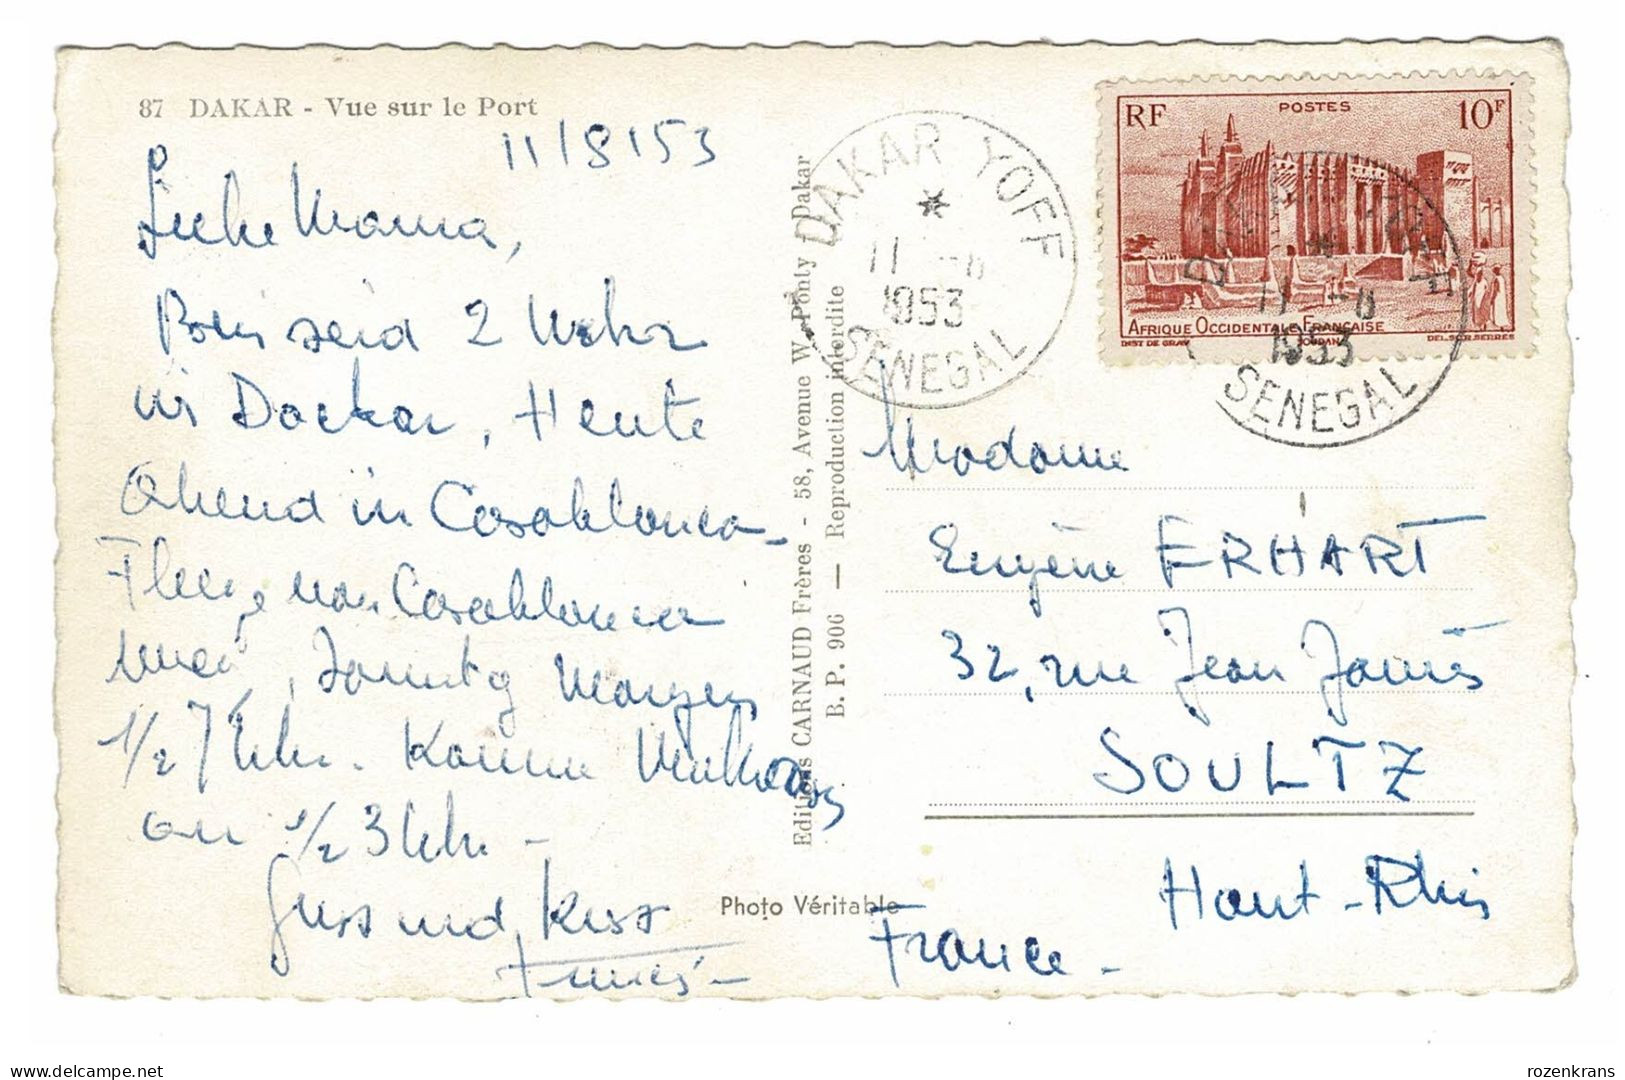 87 DAKAR - Vue sur le Port
11/8/53
Liebe Mama,
Bin seid 2 Uhr
in Dackar, Heute
Abend in Casablanca -
Fliege von Casablanca
Sonntag Morgen
1/2 7 Uhr. Komme
an 1/2 3 Uhr -
Gruss und Kuss
Editions CARNAUD Frères - 58, Avenue W. Ponty Dakar
B. P. 906 — Reproduction interdite
Photo Véritable
DAKAR YOFF
11 -8
1953
SENEGAL
RF POSTES 10F
AFRIQUE OCCIDENTALE FRANÇAISE
DAKAR YOFF
11 -8
1953
SENEGAL
Madame
Eugène ERHART
32, rue Jean Jaurès
SOULTZ
Haut-Rhin
France -
rozenkrans